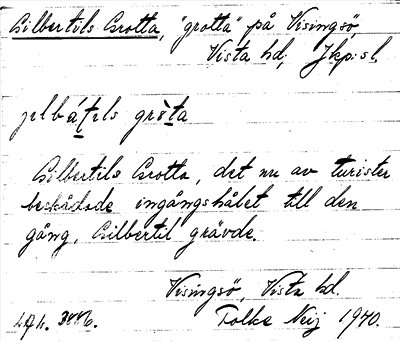 Gilbertils Grotta, "grotta" på Visingsö,
Vista hd; Jkp:s l.
Gilbertils Grotta, det nu av turister
beskådade ingångshålet till den
gång, Gilbertil grävde.
Visingsö, Vista hd.
Folke Neij 1940.